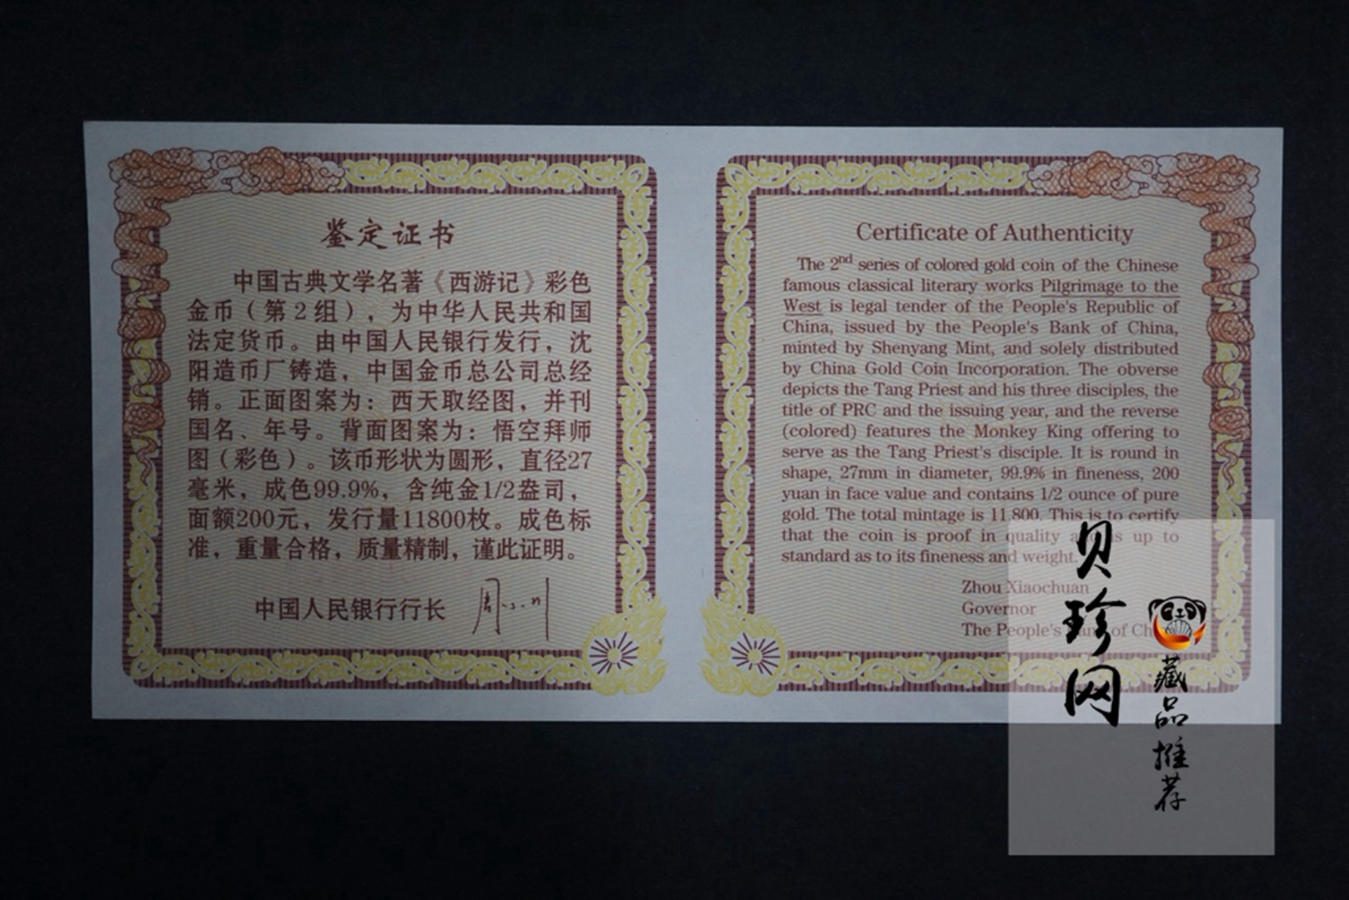 鉴定证书
中国古典文学名著《西游记》彩色
金币（第2组），为中华人民共和国
法定货币。由中国人民银行发行，沈
阳造币厂铸造，中国金币总公司总经
销。正面图案为：西天取经图，并刊
国名、年号。背面图案为：悟空拜师
图（彩色）。该币形状为圆形，直径27
毫米，成色99.9%，含纯金1/2盎司，
面额200元，发行量11800枚。成色标
准，重量合格，质量精制，谨此证明。
中国人民银行行长
Certificate of Authenticity
The 2nd series of colored gold coin of the Chinese
famous classical literary works Pilgrimage to the
West is legal tender of the People's Republic of
China, issued by the People's Bank of China,
minted by Shenyang Mint, and solely distributed
by China Gold Coin Incorporation. The obverse
depicts the Tang Priest and his three disciples, the
title of PRC and the issuing year, and the reverse
(colored) features the Monkey King offering to
serve as the Tang Priest's disciple. It is round in
shape, 27mm in diameter, 99.9% in fineness, 200
yuan in face value and contains 1/2 ounce of pure
gold. The total mintage is 11,800. This is to certify
that the coin is proof in quality is up to
standard as to its fineness and weight.
Zhou Xiaochuan
Governor
The People's Bank of China
贝珍网
藏品推荐